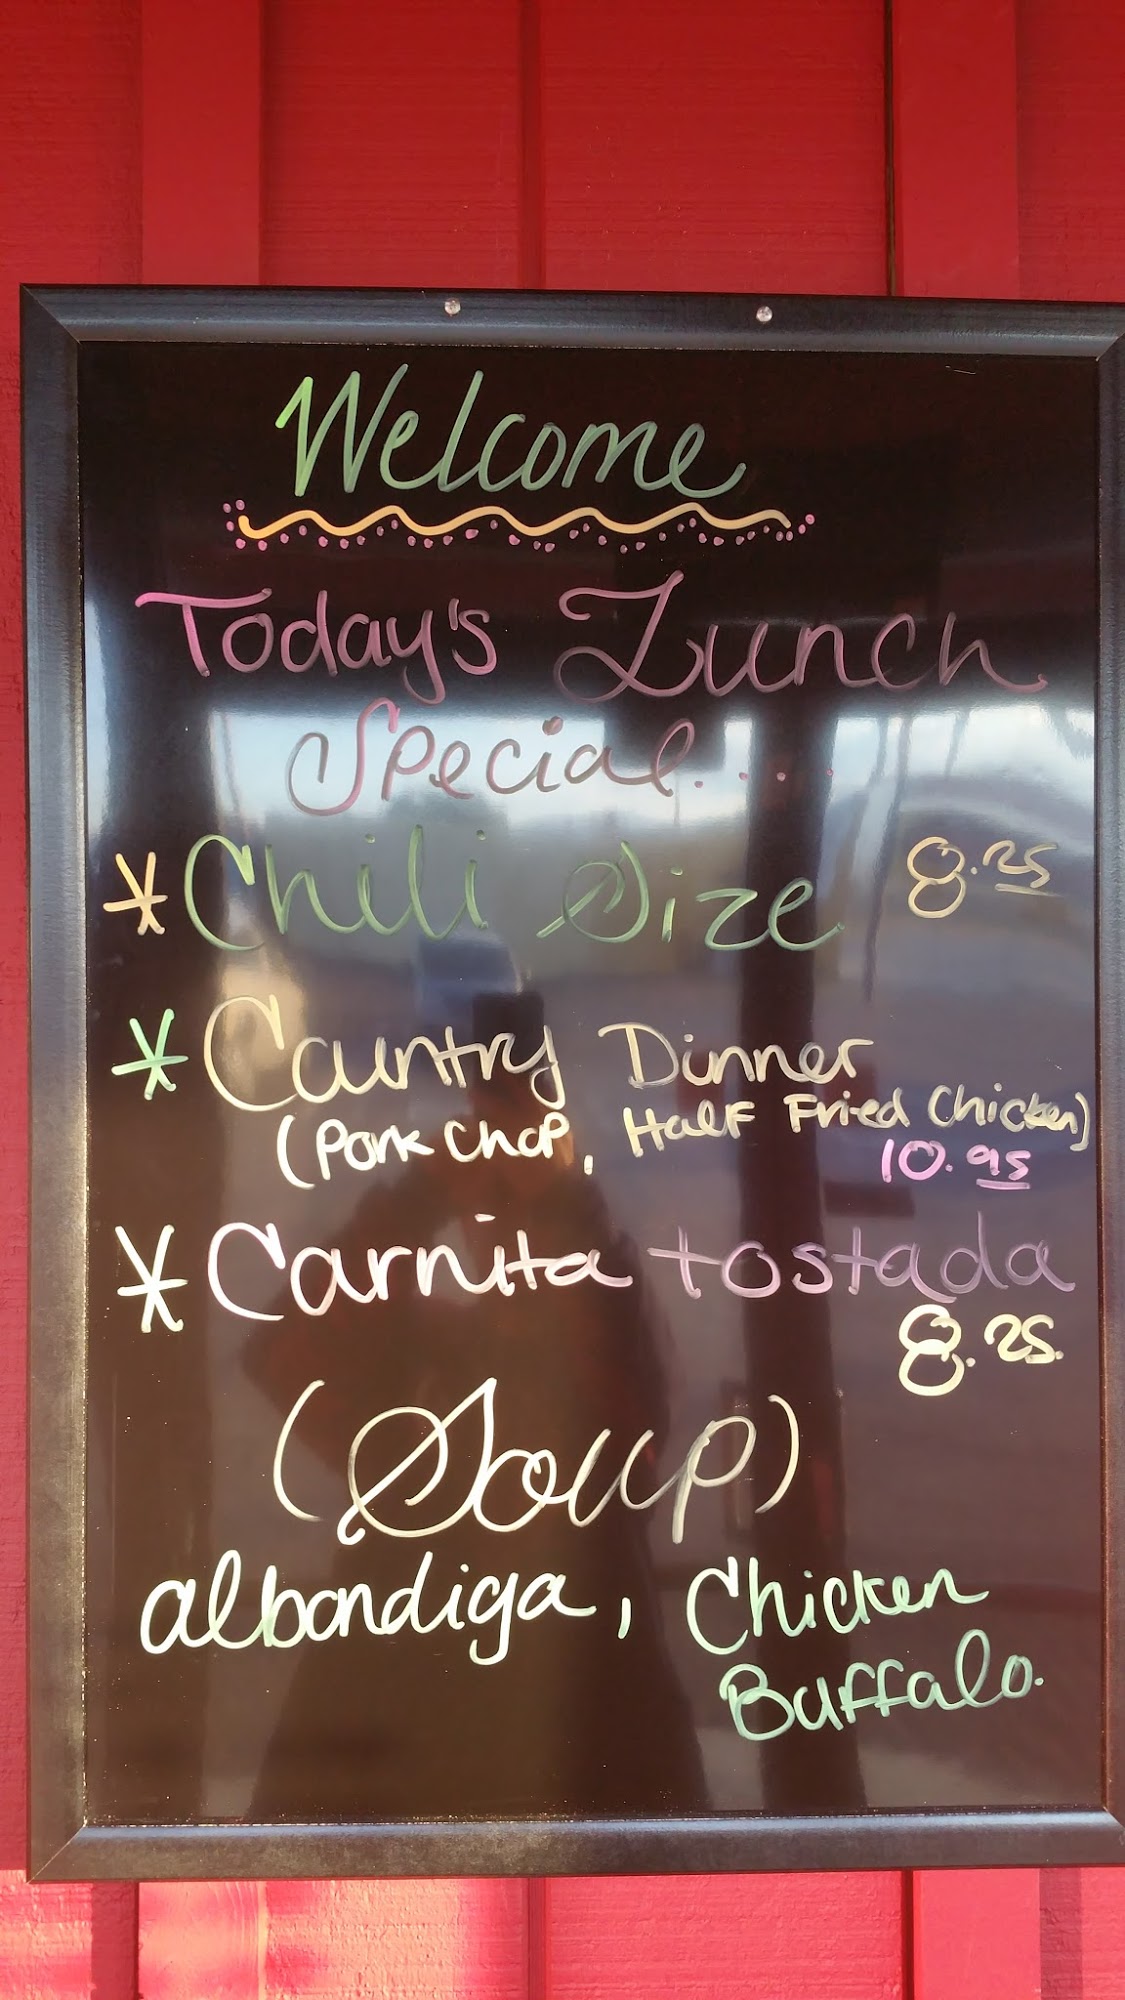 Welcome
Today's Lunch
Special....
* Chili Size 8.25
* Country Dinner
(Pork Chop, Half Fried Chicken)
10.95
* Carnita tostada
8.25.
(Soup)
albondiga, Chicken
Buffalo.